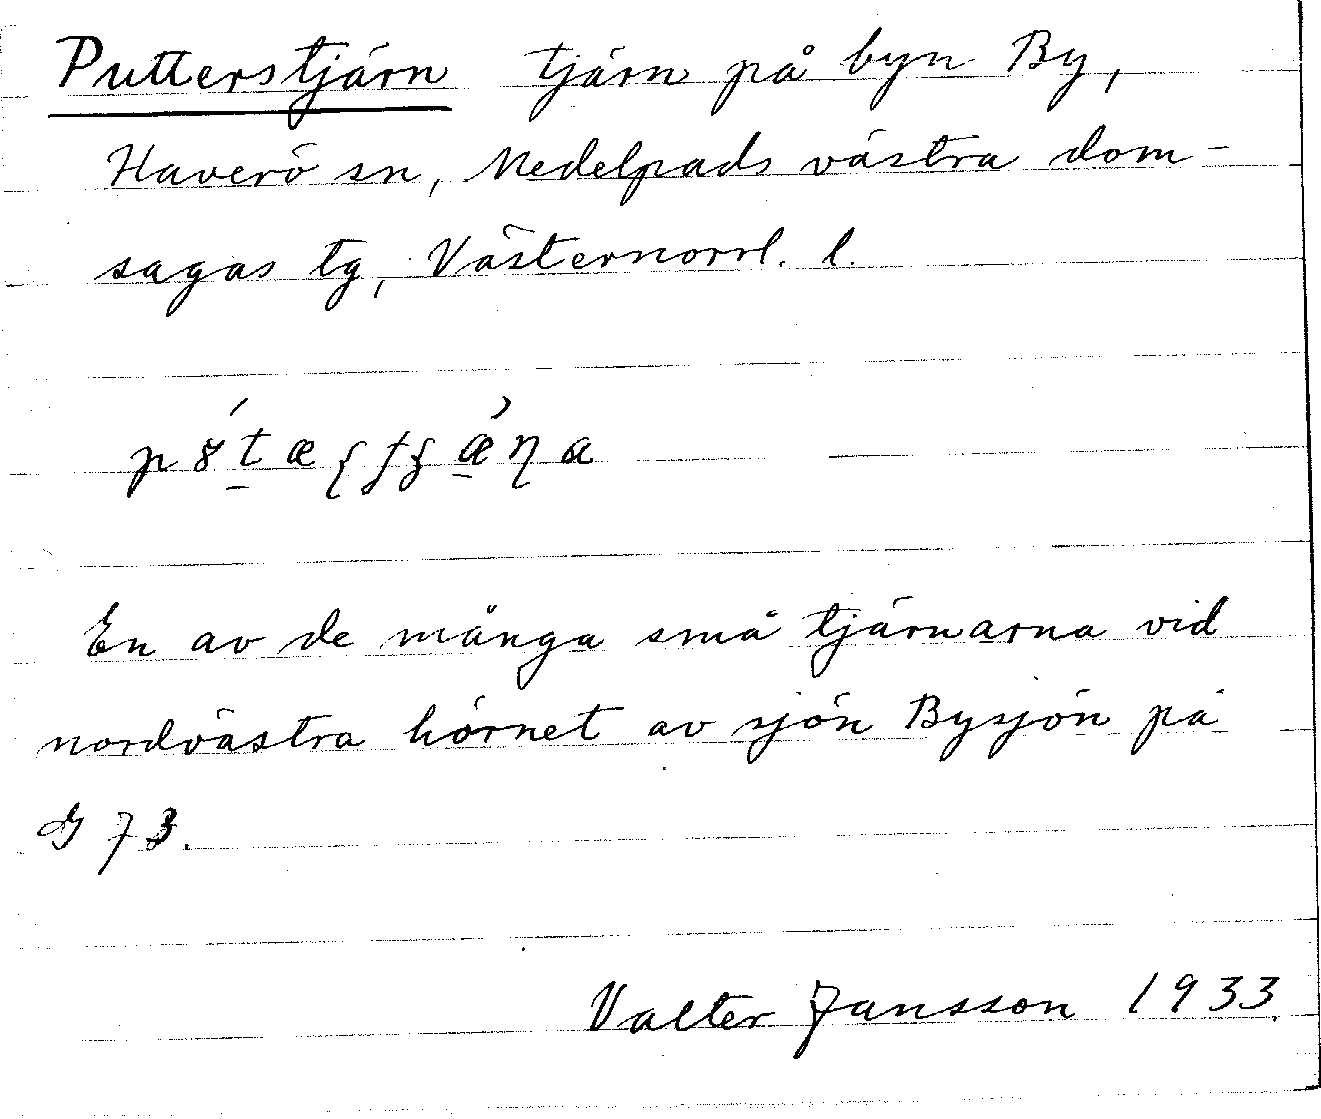 Putterstjärn tjärn på byn By,
Haverö sn, Medelpads västra dom-
sagas tg, Västernorrl. l.
En av de många små tjärnarna vid
nordvästra hörnet av sjön Bysjön på
G 73.
Valter Jansson 1933.